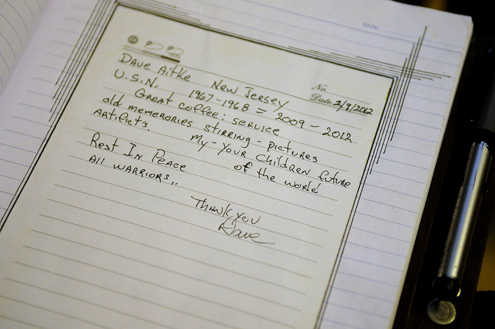 DATE
No.
Date 3/8/2012
Dave Aitke New Jersey
U.S.N. 1967-1968 = 2009-2012
Great coffee: service
old memerories stirring - pictures
Artifacts. My-your children future
of the world
Rest In Peace
All Warriors..
Thank you
Dave